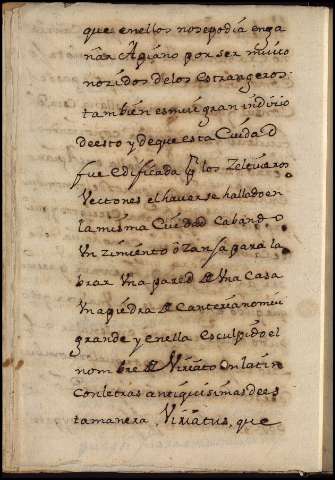 que enellos nosepodia enga
ñar Apiano por ser mui co
nocidos delos estrangeros:
tambien es mui gran indicio
deesto y de que esta Ciudad
fue edificada por los Zeltiueros
Vectones el hauerse hallado en
la misma Ciudad Cabando
Vn zimiento ô Zanja para la
brar vna pared de vna Casa
Vna piedra de Canteria no mui
grande y enella esculpido el
nombre de Viriato en latin
con letras antiquisimas de es
ta manera, Viriatus, que